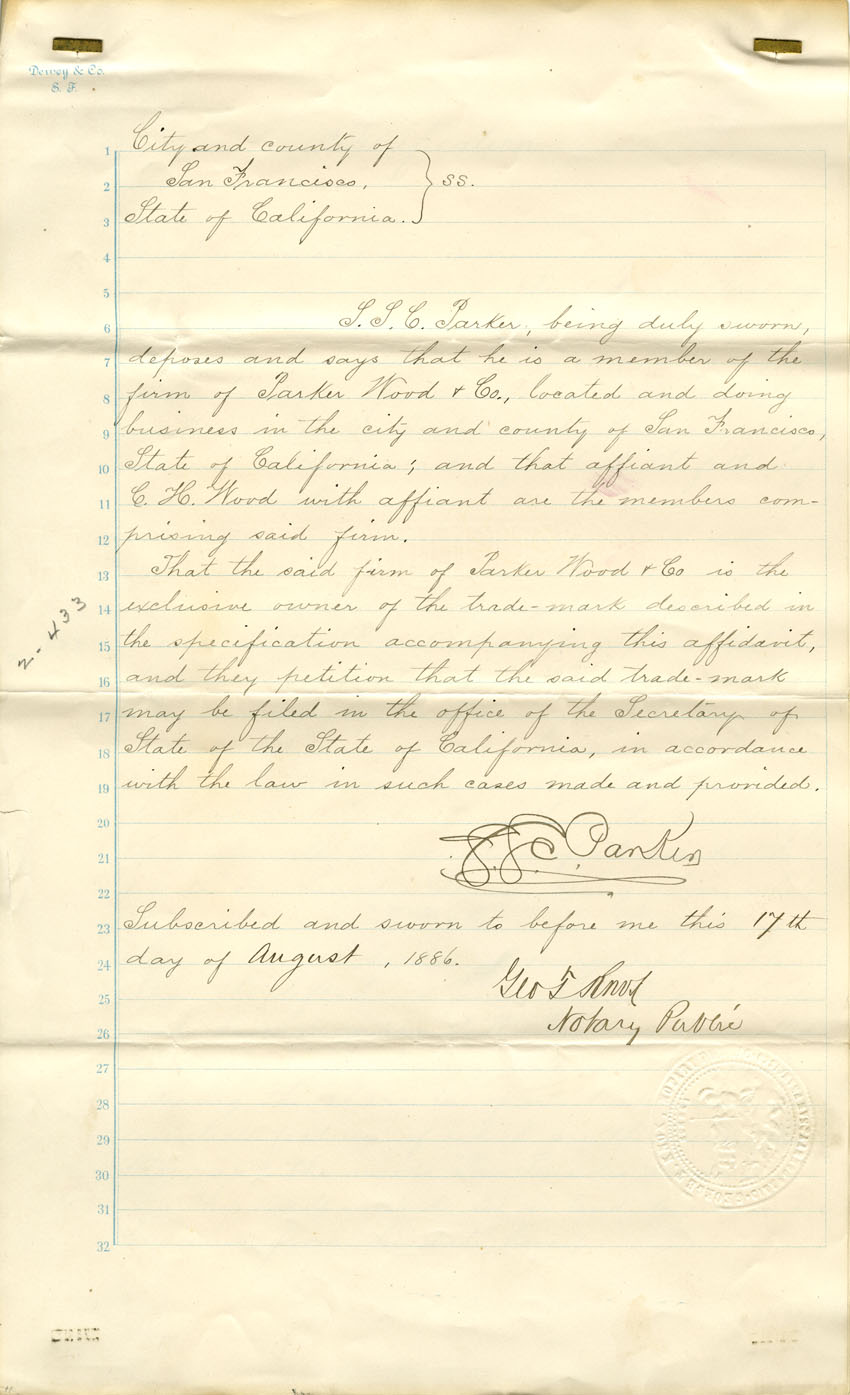 Dewey & Co.
S. F.
City and county of
San Francisco, } ss.
State of California.
S. S. C. Parker, being duly sworn,
deposes and says that he is a member of the
firm of Parker Wood & Co., located and doing
business in the city and county of San Francisco,
State of California; and that affiant and
C. H. Wood with affiant are the members com-
prising said firm.
That the said firm of Parker Wood & Co is the
exclusive owner of the trade-mark described in
the specification accompanying this affidavit,
and they petition that the said trade-mark
may be filed in the office of the Secretary of
State of the State of California, in accordance
with the law in such cases made and provided.
S.S.C. Parker
Subscribed and sworn to before me this 17th
day of August, 1886.
Geo T Knox
Notary Public
2-433
1
2
3
4
5
6
7
8
9
10
11
12
13
14
15
16
17
18
19
20
21
22
23
24
25
26
27
28
29
30
31
32